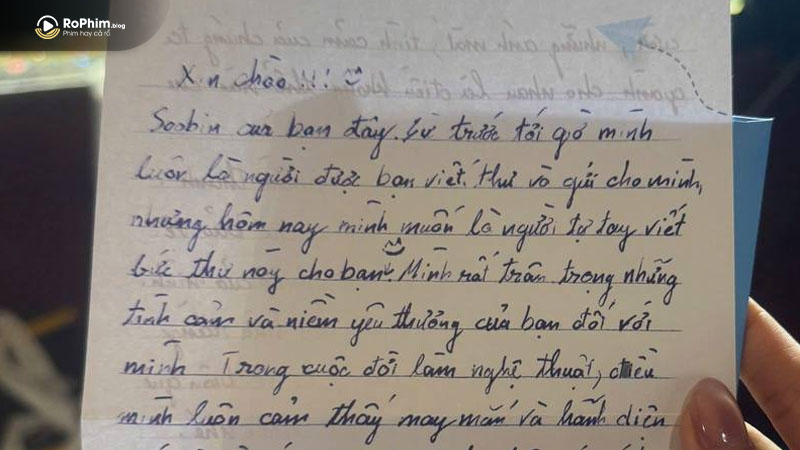 RoPhim.blog
Phim hay cả rổ
Xin chào !!!
Soobin của bạn đây. Từ trước tới giờ mình
luôn là người được bạn viết thư và gửi cho mình,
nhưng hôm nay mình muốn là người tự tay viết
bức thư này cho bạn. Mình rất trân trọng những
tình cảm và niềm yêu thương của bạn đối với
mình. Trong cuộc đời làm nghệ thuật, điều
mình luôn cảm thấy may mắn và hãnh diện